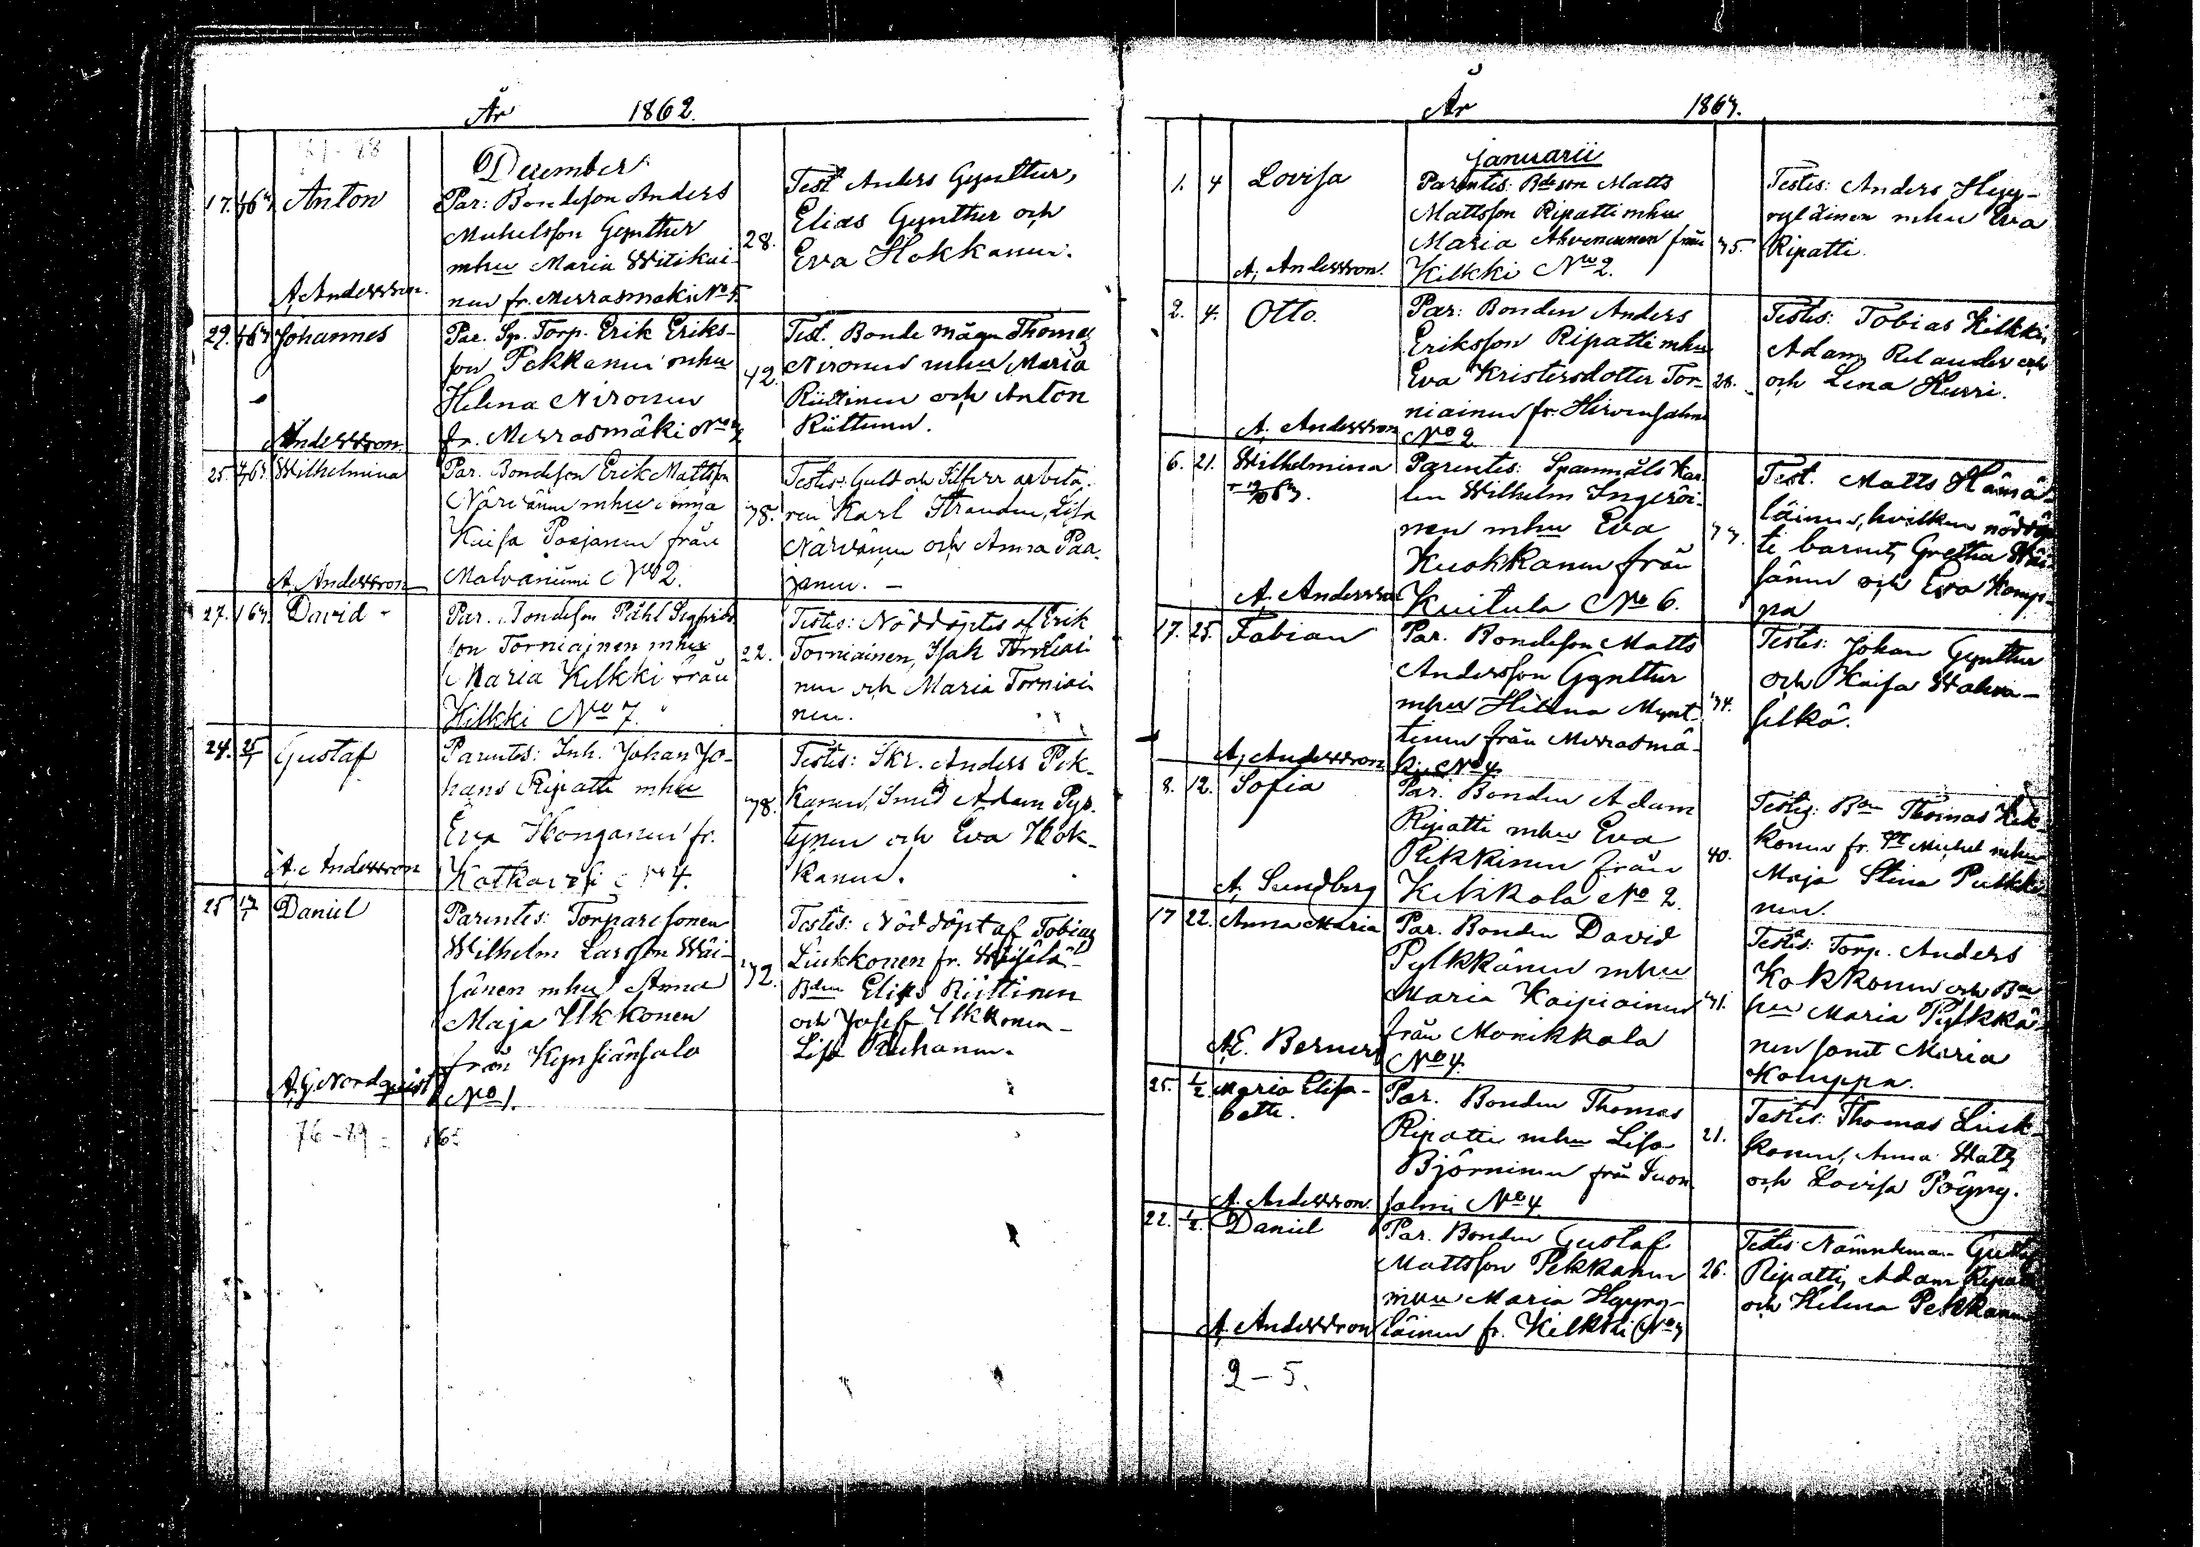 År 1862.
December
17. Anton
Par: Bondeson Anders
Michelsson Gynther
mhu Maria Witikai-
nen fr. Merrasmäki No 5.
28.
Test Anders Gynther,
Elias Gynther och
Eva Hokkanen.
A. Andersson.
29. Johannes
Par. Sp. Torp. Erik Eriks-
son Pekkanen mhu
Helena Nironen
fr. Merrasmäki No
42.
Test. Bonde mågen Thomas
Nironen mhu Maria
Riittinen och Anton
Riittinen.
Andersson.
25. Wilhelmina
Par. Bondeson Erik Mattsson
Närvänen mhu Anna
Kaisa Paajanen från
Malvaniemi No 2.
Testes: Guld och Silfverarbeta-
ren Karl Strandén, Lisa
Närvänen och Anna Paa-
janen. –
A. Andersson
27. David
Par. Bondeson Påhl Sigfrids
son Torniainen mhu
Maria Kilkki från
Kilkki No 7.
22.
Testes: Nöddöptes af Erik
Torniainen, Isak Torniai
nen och Maria Torniai
nen.
24. Gustaf
Parentes: Inh. Johan Jo-
hans Ripatti mhu
Eva Honganen fr.
No 4.
78.
Testes: Skr. Anders Pek-
kanen, Smed Adam Pyr-
tynen och Eva Hok-
kanen.
A. Andersson
25 Daniel
Parentes: Torparesonen
Wilhelm Larsson Wäi-
sänen mhu Anna
Maja Ukkonen
från Kynsiänsalo
No 1.
Testes: Nöddöpt af Tobias
Liukkonen fr.
Bden Elias Riittinen
och Josef Ukkonen –
Lisa Puhanen.
A. G. Nordquist
76 – 89
År 1863.
Januarii
1. 4 Lovisa
Parentes: Bdeson Matts
Mattsson Ripatti mhu
Maria Ahvenainen från
Kilkki No 2.
35.
Testes: Anders Hyy-
ryläinen mhu Eva
Ripatti.
A. Andersson.
2. 4. Otto.
Par: Bonden Anders
Eriksson Ripatti mhu
Eva Kristersdotter Tor-
niainen fr. Hirvensalmi
No 2
28.
Testes: Tobias Kilkki,
Adam Relander och
och Lena Hurri.
A. Andersson
6. 21. Wilhelmina
Parentes: Spannmåls Kar-
len Wilhelm Ingeröi-
nen mhu Eva
Kuokkanen från
Kuitula No 6.
Test. Matts Hämä-
läinen, hvilken nöddöp-
te barnet, Gretha Wäi-
sänen och Eva Komp-
pa
A. Andersson
17. 25. Fabian
Par. Bondeson Matts
Andersson Gynther
mhu Helena Mynt-
tinen från Merrasmä-
ki No 4
34.
Testes: Johan Gynther
och Kaisa Wahva-
selkä.
A. Andersson
8. 12. Sofia
Par. Bonden Adam
Ripatti mhu Eva
Pekkinen från
Kekkola No 2.
40.
Testes: Bon Thomas Kek-
konen fr. St Michel mhu
Maja Stina Pulkki-
nen.
A. Sundberg
17 22. Anna Maria
Par. Bonden David
Pylkkänen mhu
Maria Kaipiainen
från Monikkala
No 4.
31.
Testes: Torp. Anders
Kokkonen och Bon
hu Maria Pylkkä-
nen samt Maria
Komppa.
A. E. Berner
25. 1/2 Maria Elisa-
beth.
Par. Bonden Thomas
Ripatti mhu Lisa
Björninen från Suon
salmi No 4
21.
Testes: Thomas Liuk-
konen, Anna Hatz
och Lovisa Pöyry.
A. Andersson.
22. 1/2. Daniel
Par. Bonden Gustaf
Mattsson Pekkanen
mhu Maria Hyyry-
läinen fr. Kilkki No
26.
Testes Nämndeman Gustaf
Ripatti, Adam Ripatti
och Helena Pekkanen
A. Andersson
2 – 5.